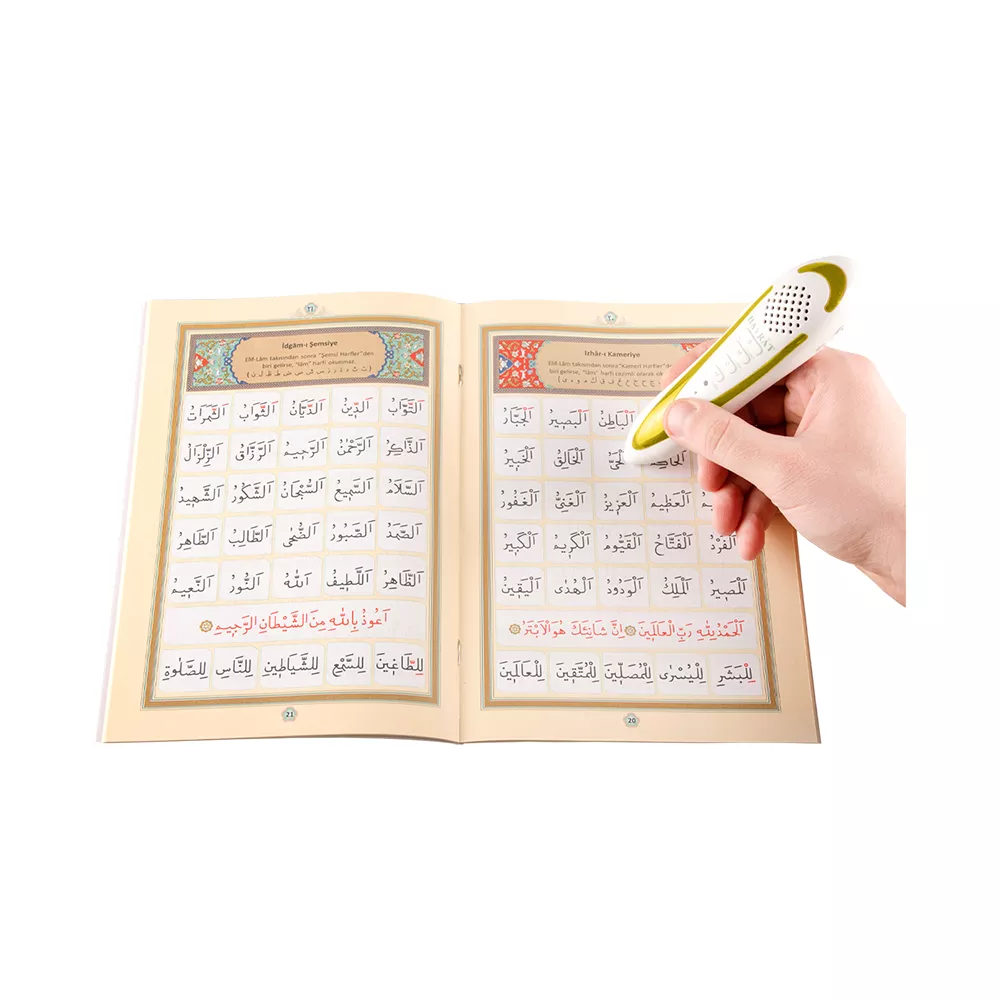 ٢٠
Izhâr-ı Kameriye
Elif-Lâm takısından sonra "Kamerî Harfler"de
biri gelirse, "lâm" harfi cezimli olarak
اَلْبَاطِنُ اَلْبَصِيرُ اَلْجَبَّارُ
اَلْخَالِقُ اَلْخَبِيرُ
اَلْعَظِيمُ اَلْعَزِيزُ اَلْغَنِىُّ اَلْغَفُورُ
اَلْفَرْدُ اَلْفَتَّاحُ اَلْقَيُّومُ اَلْكَرِيمُ اَلْكَبِيرُ
اَلْمَصِيرُ اَلْمَلِكُ اَلْوَدُودُ اَلْهُدٰى اَلْيَقِينُ
اَلْحَمْدُ لِلّٰهِ رَبِّ الْعَالَمِينَ اِنَّ شَانِئَكَ هُوَ الْاَبْتَرُ
لِلْبَشَرِ لِلْيُسْرٰى لِلْمُصَلِّينَ لِلْمُتَّقِينَ لِلْعَالَمِينَ
20
٢١
İdgâm-ı Şemsiye
Elif-Lâm takısından sonra "Şemsî Harfler"den
biri gelirse, "lâm" harfi okunmaz.
( ت ث د ذ ر ز س ش ص ض ط ظ ل ن )
اَلتَّوَّابُ اَلدِّينُ اَلدَّيَّانُ اَلثَّوَابُ اَلثَّمَرَاتُ
اَلذَّاكِرُ اَلرَّحْمٰنُ اَلرَّحِيمُ اَلرَّزَّاقُ اَلزِّلْزَالُ
اَلسَّلَامُ اَلسَّمِيعُ اَلسُّبْحَانُ اَلشَّكُورُ اَلشَّهِيدُ
اَلصَّمَدُ اَلصَّبُورُ اَلضُّحٰى اَلطَّالِبُ اَلطَّاهِرُ
اَلظَّاهِرُ اَللَّطِيفُ اَللّٰهُ اَلنُّورُ اَلنَّعِيمُ
اَعُوذُ بِاللّٰهِ مِنَ الشَّيْطَانِ الرَّجِيمِ
لِلطَّاغِينَ لِلسَّمْعِ لِلشَّيَاطِينِ لِلنَّاسِ لِلصَّلٰوةِ
21
HAYRAT